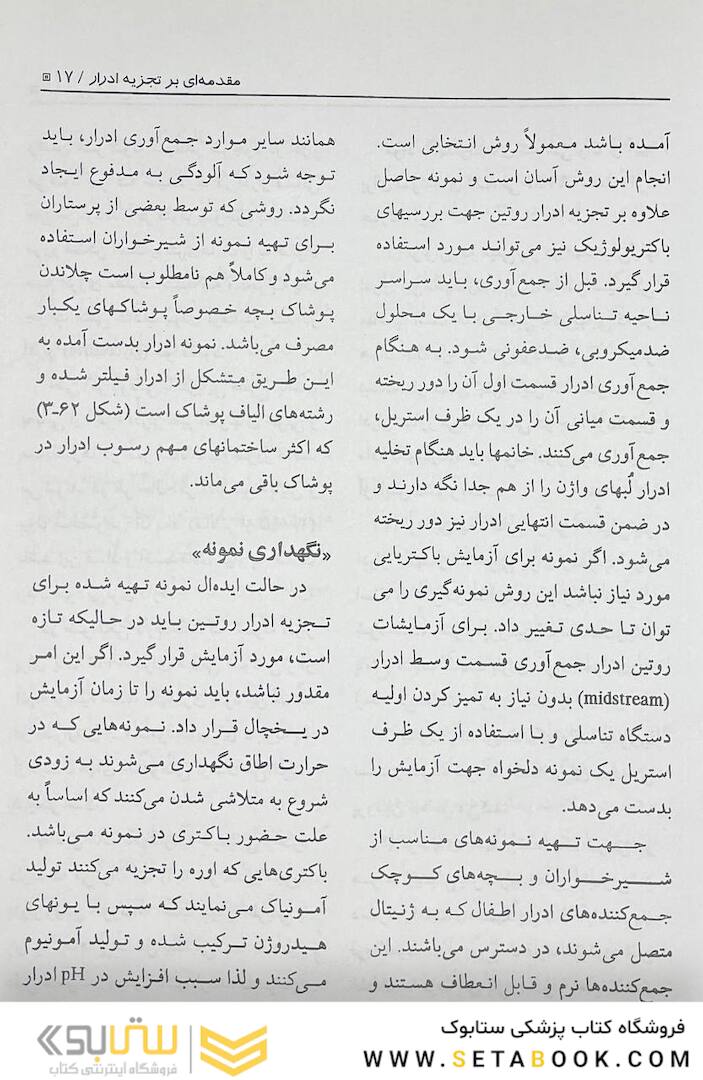 مقدمه‌ای بر تجزیه ادرار / ۱۷
آمده باشد معمولاً روش انتخابی است.
انجام این روش آسان است و نمونه حاصل
علاوه بر تجزیه ادرار روتین جهت بررسیهای
باکتریولوژیک نیز می‌تواند مورد استفاده
قرار گیرد. قبل از جمع‌آوری، باید سراسر
ناحیه تناسلی خارجی با یک محلول
ضدمیکروبی، ضدعفونی شود. به هنگام
جمع‌آوری ادرار قسمت اول آن را دور ریخته
و قسمت میانی آن را در یک ظرف استریل،
جمع‌آوری می‌کنند. خانمها باید هنگام تخلیه
ادرار لُبهای واژن را از هم جدا نگه دارند و
در ضمن قسمت انتهایی ادرار نیز دور ریخته
می‌شود. اگر نمونه برای آزمایش باکتریایی
مورد نیاز نباشد این روش نمونه‌گیری را می
توان تا حدی تغییر داد. برای آزمایشات
روتین ادرار جمع‌آوری قسمت وسط ادرار
(midstream) بدون نیاز به تمیز کردن اولیه
دستگاه تناسلی و با استفاده از یک ظرف
استریل یک نمونه دلخواه جهت آزمایش را
بدست می‌دهد.
جهت تهیه نمونه‌های مناسب از
شیرخواران و بچه‌های کوچک
جمع‌کننده‌های ادرار اطفال که به ژنیتال
متصل می‌شوند، در دسترس می‌باشند. این
جمع‌کننده‌ها نرم و قابل انعطاف هستند و
همانند سایر موارد جمع‌آوری ادرار، باید
توجه شود که آلودگی به مدفوع ایجاد
نگردد. روشی که توسط بعضی از پرستاران
برای تهیه نمونه از شیرخواران استفاده
می‌شود و کاملاً هم نامطلوب است چلاندن
پوشاک بچه خصوصاً پوشاکهای یکبار
مصرف می‌باشد. نمونه ادرار بدست آمده به
این طریق متشکل از ادرار فیلتر شده و
رشته‌های الیاف پوشاک است (شکل ۶۲ـ۳)
که اکثر ساختمانهای مهم رسوب ادرار در
پوشاک باقی می‌ماند.
«نگهداری نمونه»
در حالت ایده‌ال نمونه تهیه شده برای
تجزیه ادرار روتین باید در حالیکه تازه
است، مورد آزمایش قرار گیرد. اگر این امر
مقدور نباشد، باید نمونه را تا زمان آزمایش
در یخچال قرار داد. نمونه‌هایی که در
حرارت اطاق نگهداری می‌شوند به زودی
شروع به متلاشی شدن می‌کنند که اساساً به
علت حضور باکتری در نمونه می‌باشد.
باکتری‌هایی که اوره را تجزیه می‌کنند تولید
آمونیاک می‌نمایند که سپس با یونهای
هیدروژن ترکیب شده و تولید آمونیوم
می‌کنند و لذا سبب افزایش در pH ادرار
فروشگاه کتاب پزشکی ستابوک
WWW.SETABOOK.COM
ستابوک
فروشگاه اینترنتی کتاب